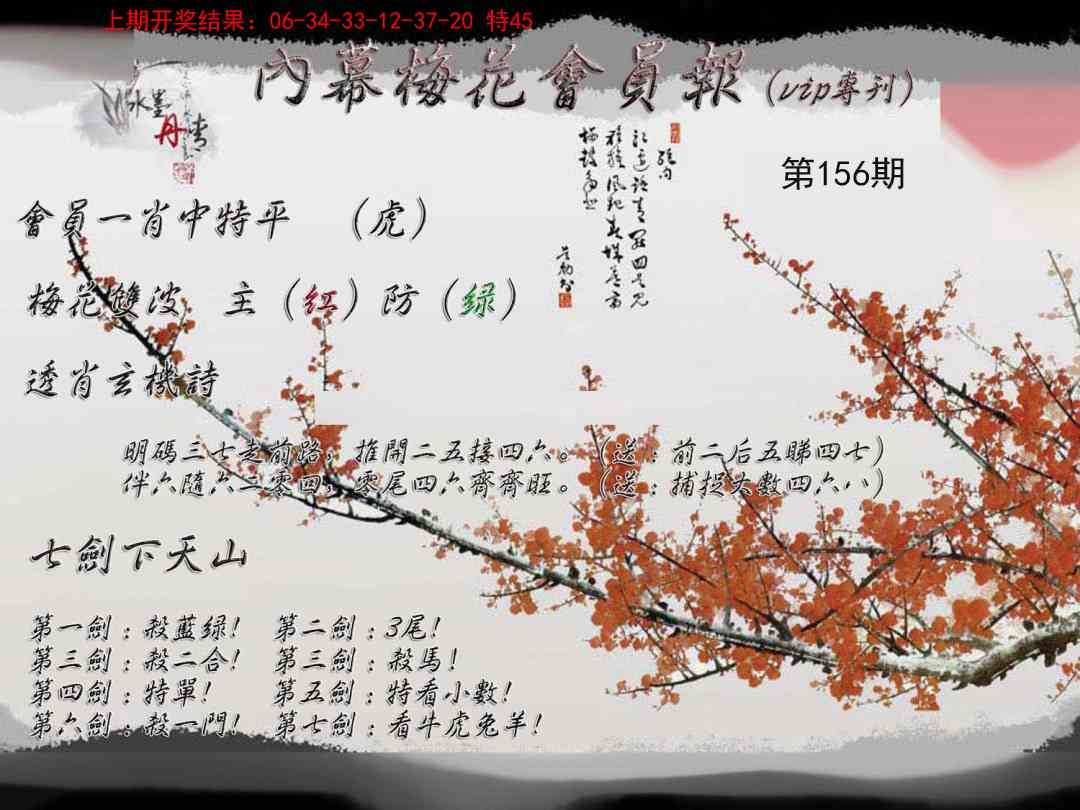 上期开奖结果：06-34-33-12-37-20 特45
內幕梅花會員報（vip專刊）
水墨
丹青
第156期
會員一肖中特平　（虎）
梅花雙波　主（红）防（绿）
透肖玄機詩
明碼三七走前路，推開二五接四六。（送：前二后五睇四七）
伴六隨六二零四，零尾四六齊齊旺。（送：捕捉大數四六八）
七劍下天山
第一劍：殺藍绿！　第二劍：3尾！
第三劍：殺二合！　第三劍：殺馬！
第四劍：特單！　第五劍：特看小數！
第六劍：殺一門！　第七劍：看牛虎兔羊！